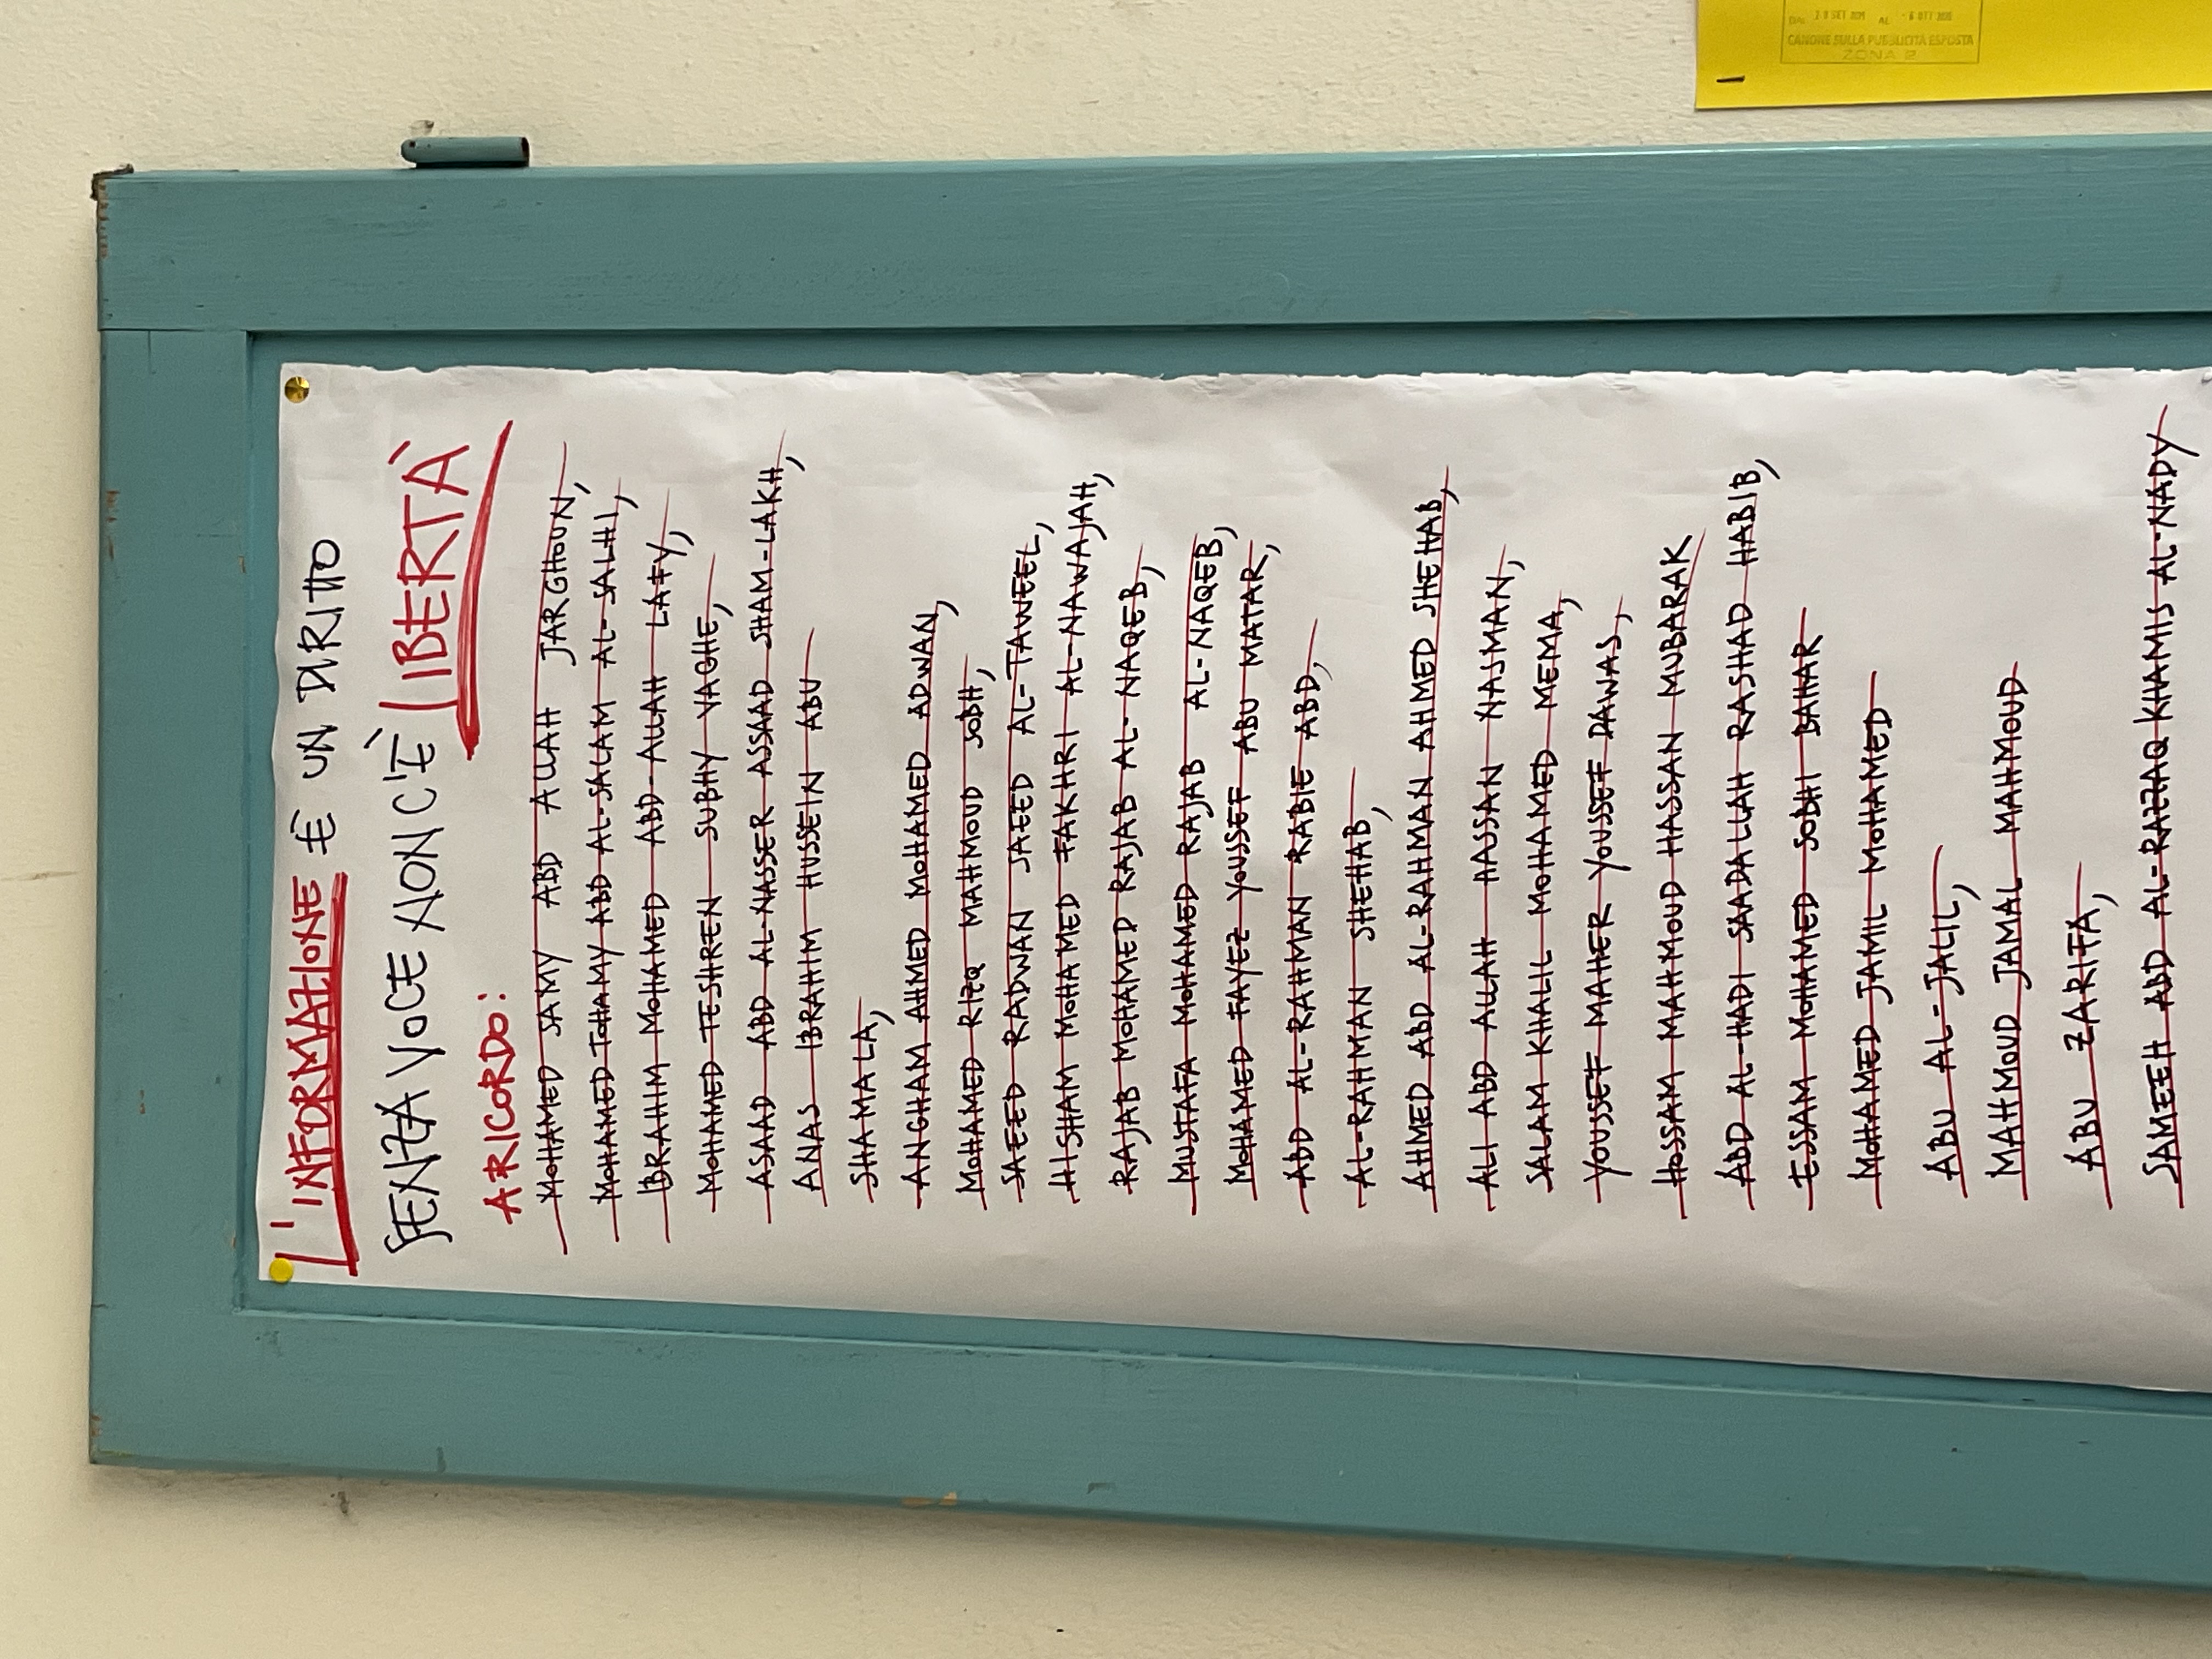 L'INFORMAZIONE È UN DIRITTO
SENZA VOCE NON C'È LIBERTÀ
A RICORDO:
MOHAMED SAMY ABD ALLAH JARGHOUN,
MOHAMED TOHAMY ABD AL-SALAM AL-SALHI,
IBRAHIM MOHAMED ABD-ALLAH LAFY,
MOHAMED TESHREN SUBHY YAGHE,
ASAAD ABD AL-NASSER ASSAAD SHAM-LAKH,
ANAS IBRAHIM HUSSEIN ABU
SHAMALA,
ANGHAM AHMED MOHAMED ADWAN,
MOHAMED RIZQ MAHMOUD SOBH,
SAEED RADWAN SAEED AL-TAWEEL,
HISHAM MOHAMED FAKHRI AL-NAWAJAH,
RAJAB MOHAMED RAJAB AL-NAQEB,
MUSTAFA MOHAMED RAJAB AL-NAQEB,
MOHAMED FAYEZ YOUSSEF ABU MATAR,
ABD AL-RAHMAN RABIE ABD,
AL-RAHMAN SHEHAB,
AHMED ABD AL-RAHMAN AHMED SHEHAB,
ALI ABD ALLAH HASSAN NASMAN,
SALAM KHALIL MOHAMED MEMA,
YOUSSEF MAHER YOUSSEF DAWAS,
HOSSAM MAHMOUD HASSAN MUBARAK
ABD AL-HADI SAADALLAH RASHAD HABIB,
ESSAM MOHAMED SOBHI BAHAR
MOHAMED JAMIL MOHAMED
ABU AL-JALIL,
MAHMOUD JAMAL MAHMOUD
ABU ZARIFA,
SAMEEH ABD AL-RAZZAQ KHAMIS AL-NADY
DAL 28 SET AL -6 OTT
CANONE SULLA PUBBLICITÀ ESPOSTA
ZONA 2